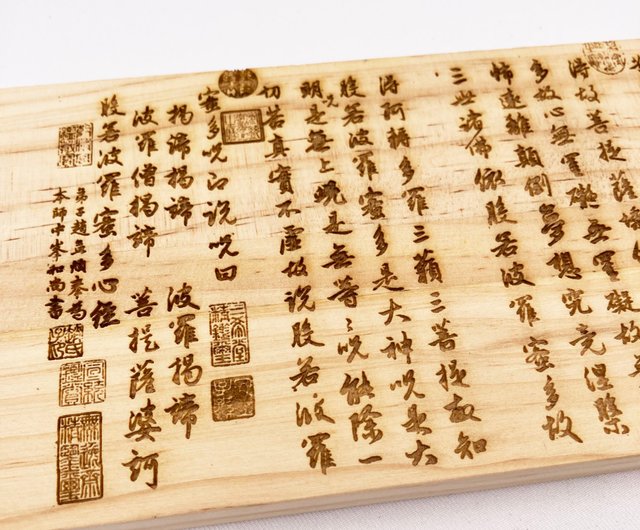 得故菩提薩埵
多故心無罣礙無罣礙故
怖遠離顛倒夢想究竟涅槃
三世諸佛依般若波羅蜜多故
得阿耨多羅三藐三菩提故知
般若波羅蜜多是大神呪是大
明呪是無上呪是無等〻呪能除一
切苦真實不虛故說般若波羅
蜜多呪即說呪曰
揭諦揭諦 波羅揭諦
波羅僧揭諦 菩提薩婆訶
般若波羅蜜多心經
弟子趙孟頫奉為
本師中峯和尚書